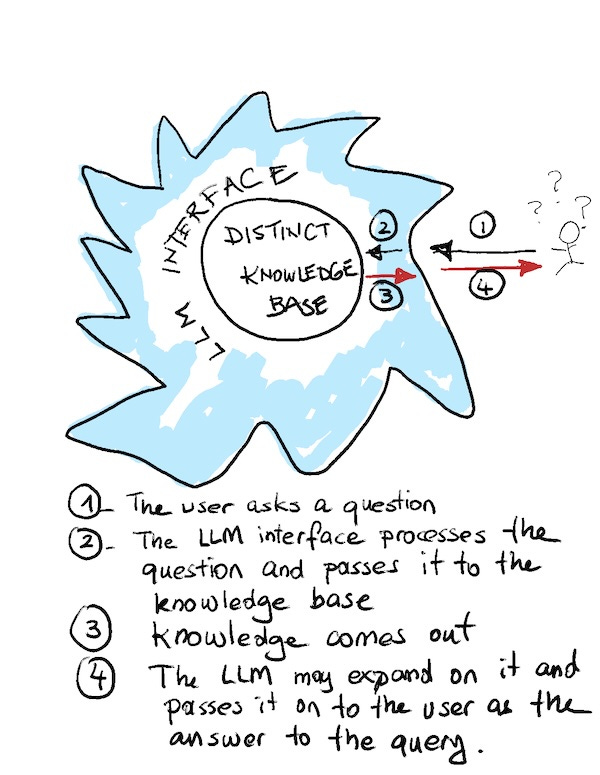 LLM INTERFACE
DISTINCT
KNOWLEDGE
BASE
2
1
3
4
? ? ?
1 - The user asks a question
2 - The LLM interface processes the
question and passes it to the
knowledge base
3 Knowledge comes out
4 The LLM may expand on it and
passes it on to the user as the
answer to the query.